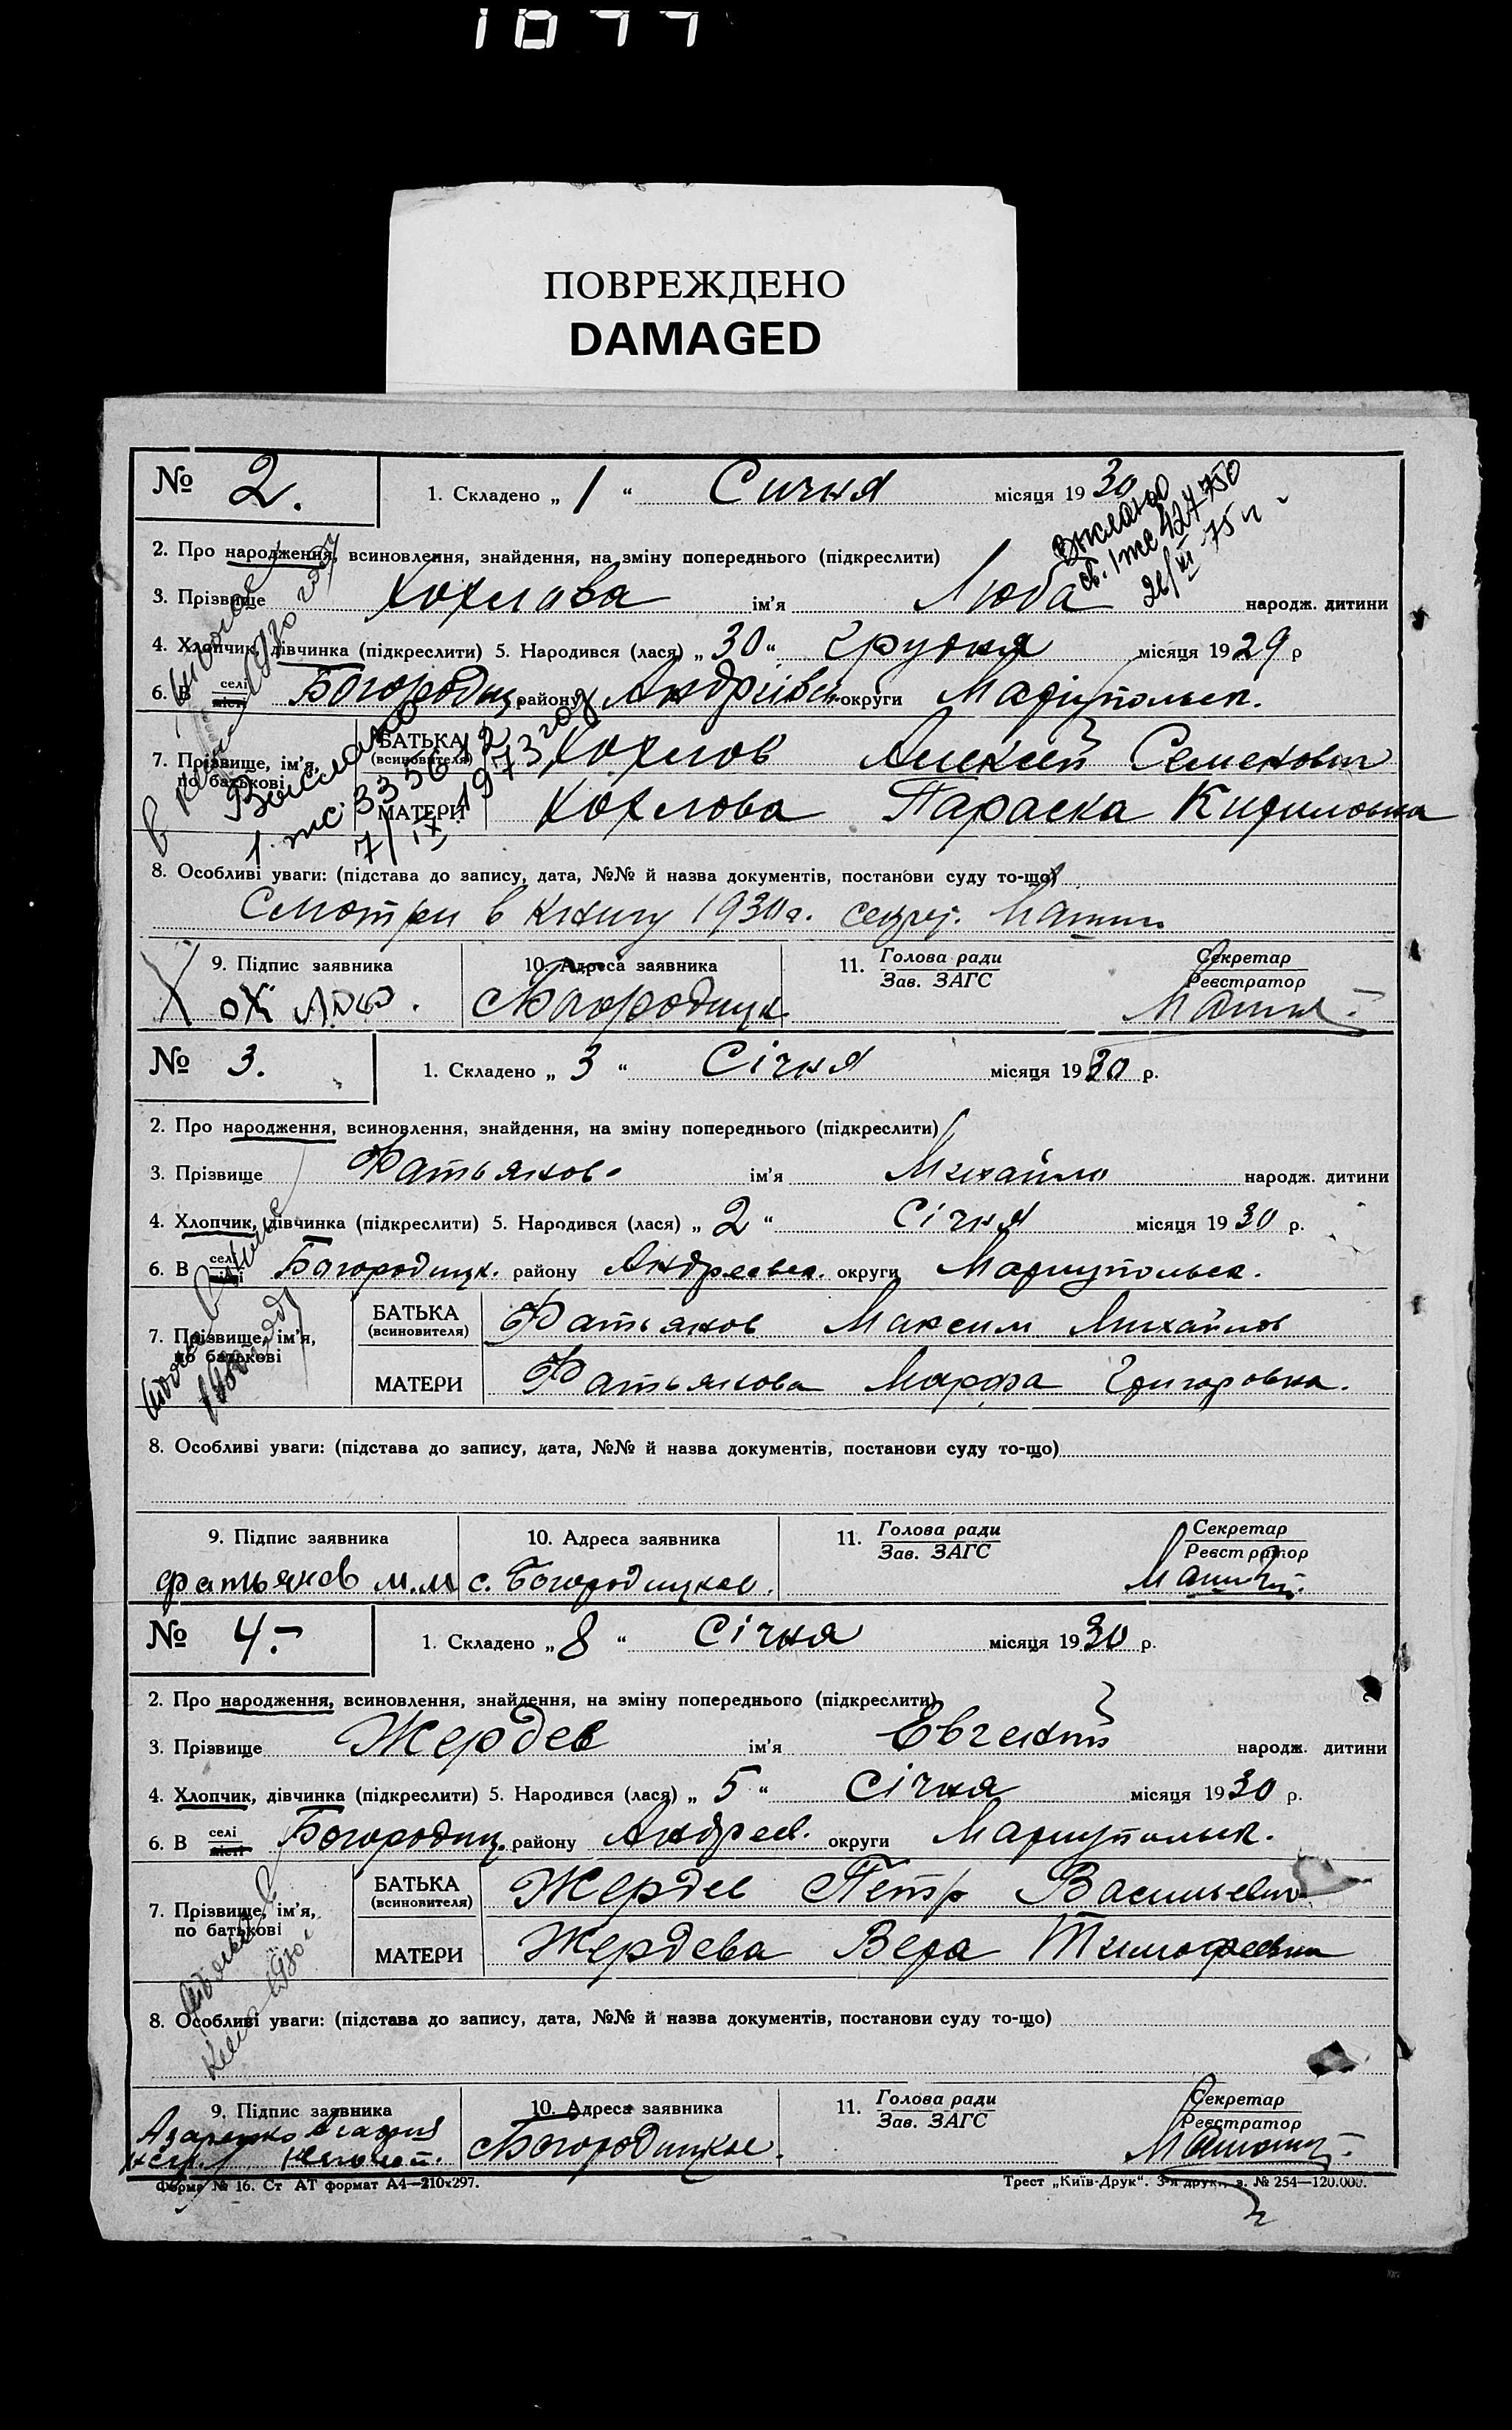 1077
ПОВРЕЖДЕНО
DAMAGED
№ 2. 1. Складено „ 1 “ Сичня місяця 1930
2. Про народження, всиновлення, знайдення, на зміну попереднього (підкреслити)
св. 1 же 427750
26/XI 75 г
3. Прізвище Хохлова ім’я Люба народж. дитини
4. Хлопчик, дівчинка (підкреслити) 5. Народився (лася) „ 30 “ Грудня місяця 1929 р
6. В селі місті Богородиц. району Андріївськ округи Маріупольск.
7. Прізвище, ім’я, по батькові БАТЬКА (всиновителя) Хохлов Алексей Семенович
МАТЕРИ Хохлова Параска Кириловна
1. жс 335612
7/IX 1973 год
8. Особливі уваги: (підстава до запису, дата, №№ й назва документів, постанови суду то-що)
Смотри в книгу 1930 г.
9. Підпис заявника 10. Адреса заявника 11. Голова ради Зав. ЗАГС Секретар Реєстратор
Хохлов. Богородицк.
№ 3. 1. Складено „ 3 “ Січня місяця 1930 р.
2. Про народження, всиновлення, знайдення, на зміну попереднього (підкреслити)
3. Прізвище Фатьянов ім’я Михайло народж. дитини
4. Хлопчик, дівчинка (підкреслити) 5. Народився (лася) „ 2 “ Січня місяця 1930 р.
6. В селі місті Богородицк. району Андреевск. округи Мариупольск.
7. Прізвище, ім’я, по батькові БАТЬКА (всиновителя) Фатьянов Максим Михайлов
МАТЕРИ Фатьянова Марфа Григоровна.
8. Особливі уваги: (підстава до запису, дата, №№ й назва документів, постанови суду то-що)
9. Підпис заявника 10. Адреса заявника 11. Голова ради Зав. ЗАГС Секретар Реєстратор
фатьянов м.м с. Богородицкое.
№ 4.- 1. Складено „ 8 “ Січня місяця 1930 р.
2. Про народження, всиновлення, знайдення, на зміну попереднього (підкреслити)
3. Прізвище Жердев ім’я Евгений народж. дитини
4. Хлопчик, дівчинка (підкреслити) 5. Народився (лася) „ 5 “ Січня місяця 1930 р.
6. В селі місті Богородиц. району Андреев. округи Мариупольск.
7. Прізвище, ім’я, по батькові БАТЬКА (всиновителя) Жердев Петр Васильевич
МАТЕРИ Жердева Вера Тимофеевна
8. Особливі уваги: (підстава до запису, дата, №№ й назва документів, постанови суду то-що)
9. Підпис заявника 10. Адреса заявника 11. Голова ради Зав. ЗАГС Секретар Реєстратор
Азаренко Агафия Богородицкое.
Форма № 16. Ст АТ формат А4—210х297. Трест „Київ-Друк“. 3-я друк., з. № 254—120.000.